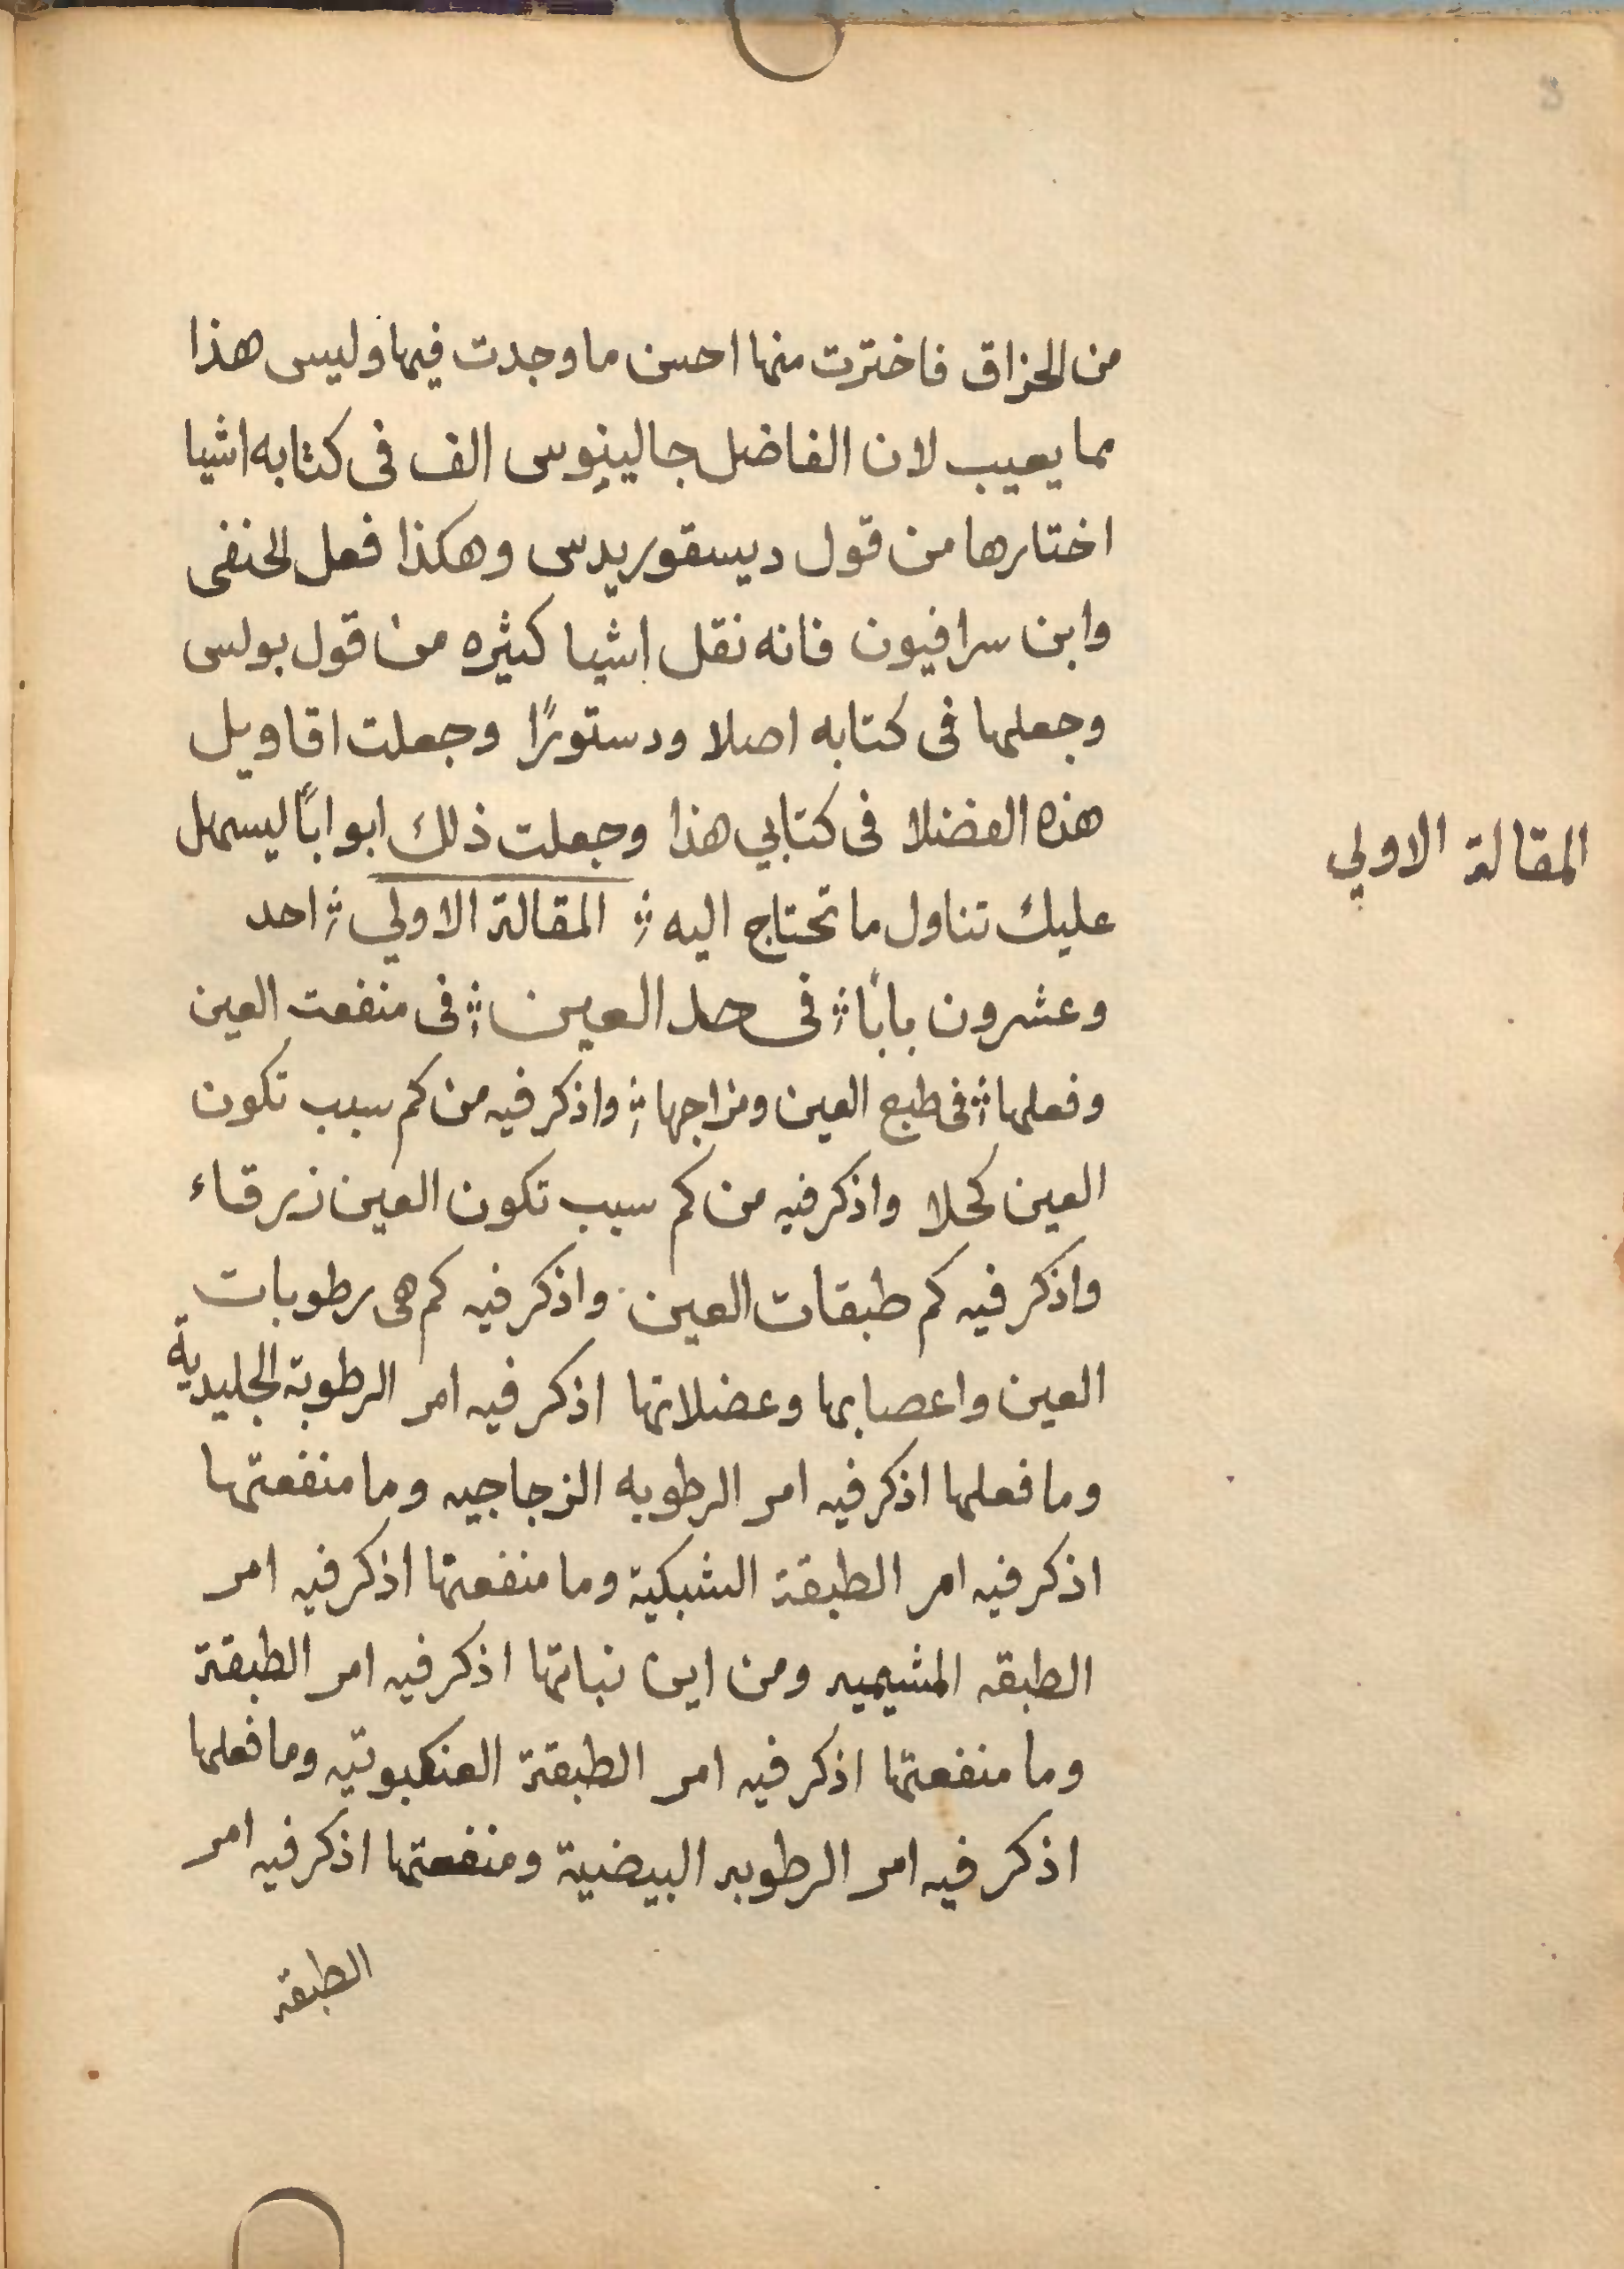 من الحزاق فاخترت منها احسن ما وجدت فيها وليس هذا
مما يعيب لان الفاضل جالينوس الف فى كتابه اشيا
اختارها من قول ديسقوريدس وهكذا فعل الحنفى
وابن سرافيون فانه نقل اشيا كثيره من قول بولس
وجعلها فى كتابه اصلا ودستورًا وجعلت اقاويل
هذه الفضلا فى كتابي هذا وجعلت ذلك ابوابًا ليسهل
المقالة الاولي
عليك تناول ما تحتاج اليه المقالة الاولي احد
وعشرون بابًا فى حد العين فى منفعت العين
وفعلها فى طبع العين ومزاجها واذكر فيه من كم سبب تكون
العين كحلا واذكر فيه من كم سبب تكون العين زرقاء
واذكر فيه كم طبقات العين واذكر فيه كم هى رطوبات
العين واعصابها وعضلاتها اذكر فيه امر الرطوبة الجليدية
وما فعلها اذكر فيه امر الرطوبه الزجاجيه وما منفعتها
اذكر فيه امر الطبقة الشبكية وما منفعتها اذكر فيه امر
الطبقه المشيميه ومن اين نباتها اذكر فيه امر الطبقة
وما منفعتها اذكر فيه امر الطبقة العنكبوتيه وما فعلها
اذكر فيه امر الرطوبه البيضية ومنفعتها اذكر فيه امر
الطبقة